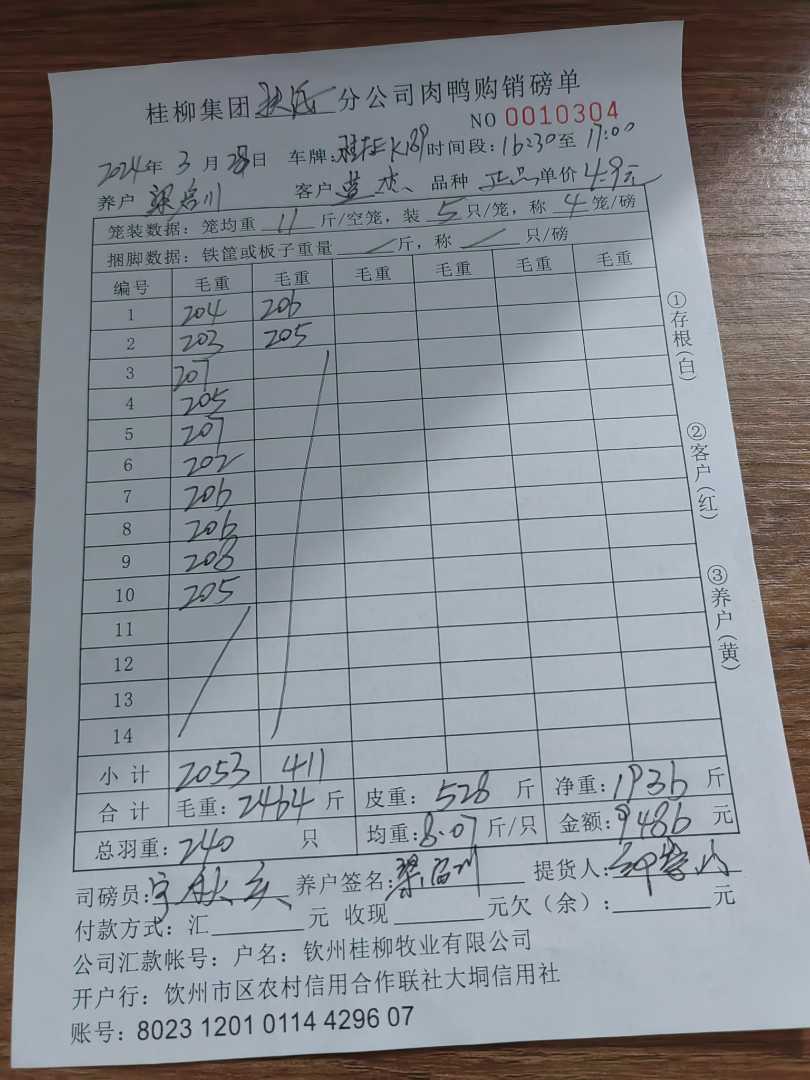 桂柳集团 分公司肉鸭购销磅单
NO 0010304
2024年 3 月 28日 车牌: K189 时间段: 16:30至 17:00
养户 梁 川 客户 蓝 品种 正品 单价 4.9元
笼装数据: 笼均重 11 斤/空笼, 装 5 只/笼, 称 4 笼/磅
捆脚数据: 铁筐或板子重量 / 斤, 称 / 只/磅
编号 毛重 毛重 毛重 毛重 毛重 毛重
1 204 206
2 203 205
3 207
4 205
5 207
6 202
7 206
8 206
9 208
10 205
11
12
13
14
小 计 2053 411
合 计 毛重: 2464 斤 皮重: 528 斤 净重: 1936 斤
总羽重: 240 只 均重: 8.07 斤/只 金额: 9486 元
司磅员: 养户签名: 梁 川 提货人:
付款方式: 汇 元 收现 元欠(余): 元
公司汇款帐号: 户名: 钦州桂柳牧业有限公司
开户行: 饮州市区农村信用合作联社大垌信用社
账号: 8023 1201 0114 4296 07
①存根(白)
②客户(红)
③养户(黄)